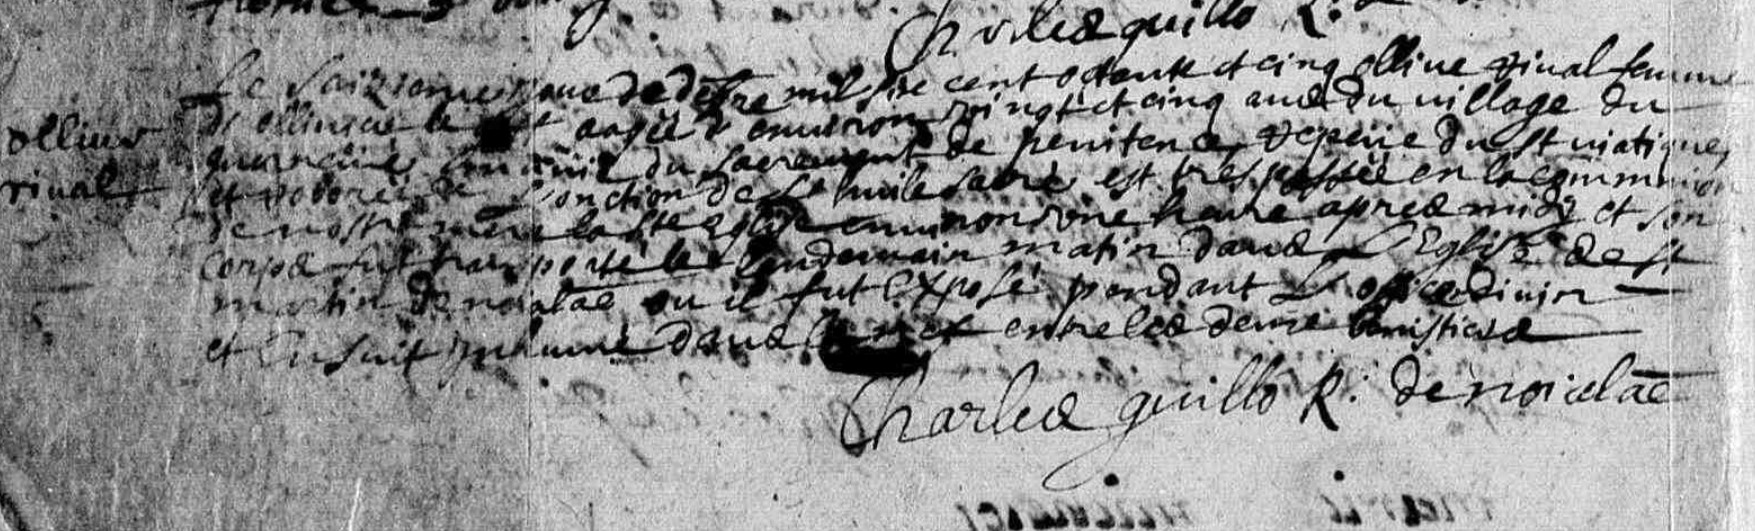 Charles guillo R.
Le saiziême jour de debre mil six cent octante et cinq ollive rival femme
de ollivier le aagée d'environ vingt et cinq ans du village du
munie du sacrement de penitence, repeüe du st viatique,
et de l'onction de l'huile sacré est trespassée en la commmunion
de nostre mere la ste eglise environ une heure apres midy et son
corps fut transporté le lendemain matin dans L'Eglise de st
martin de noialac ou il fut exposé pendant L'office divin
et ensuit inhumé dans la nef entre les deux benistiers
ollive
rival
Charles guillo R. de noialac